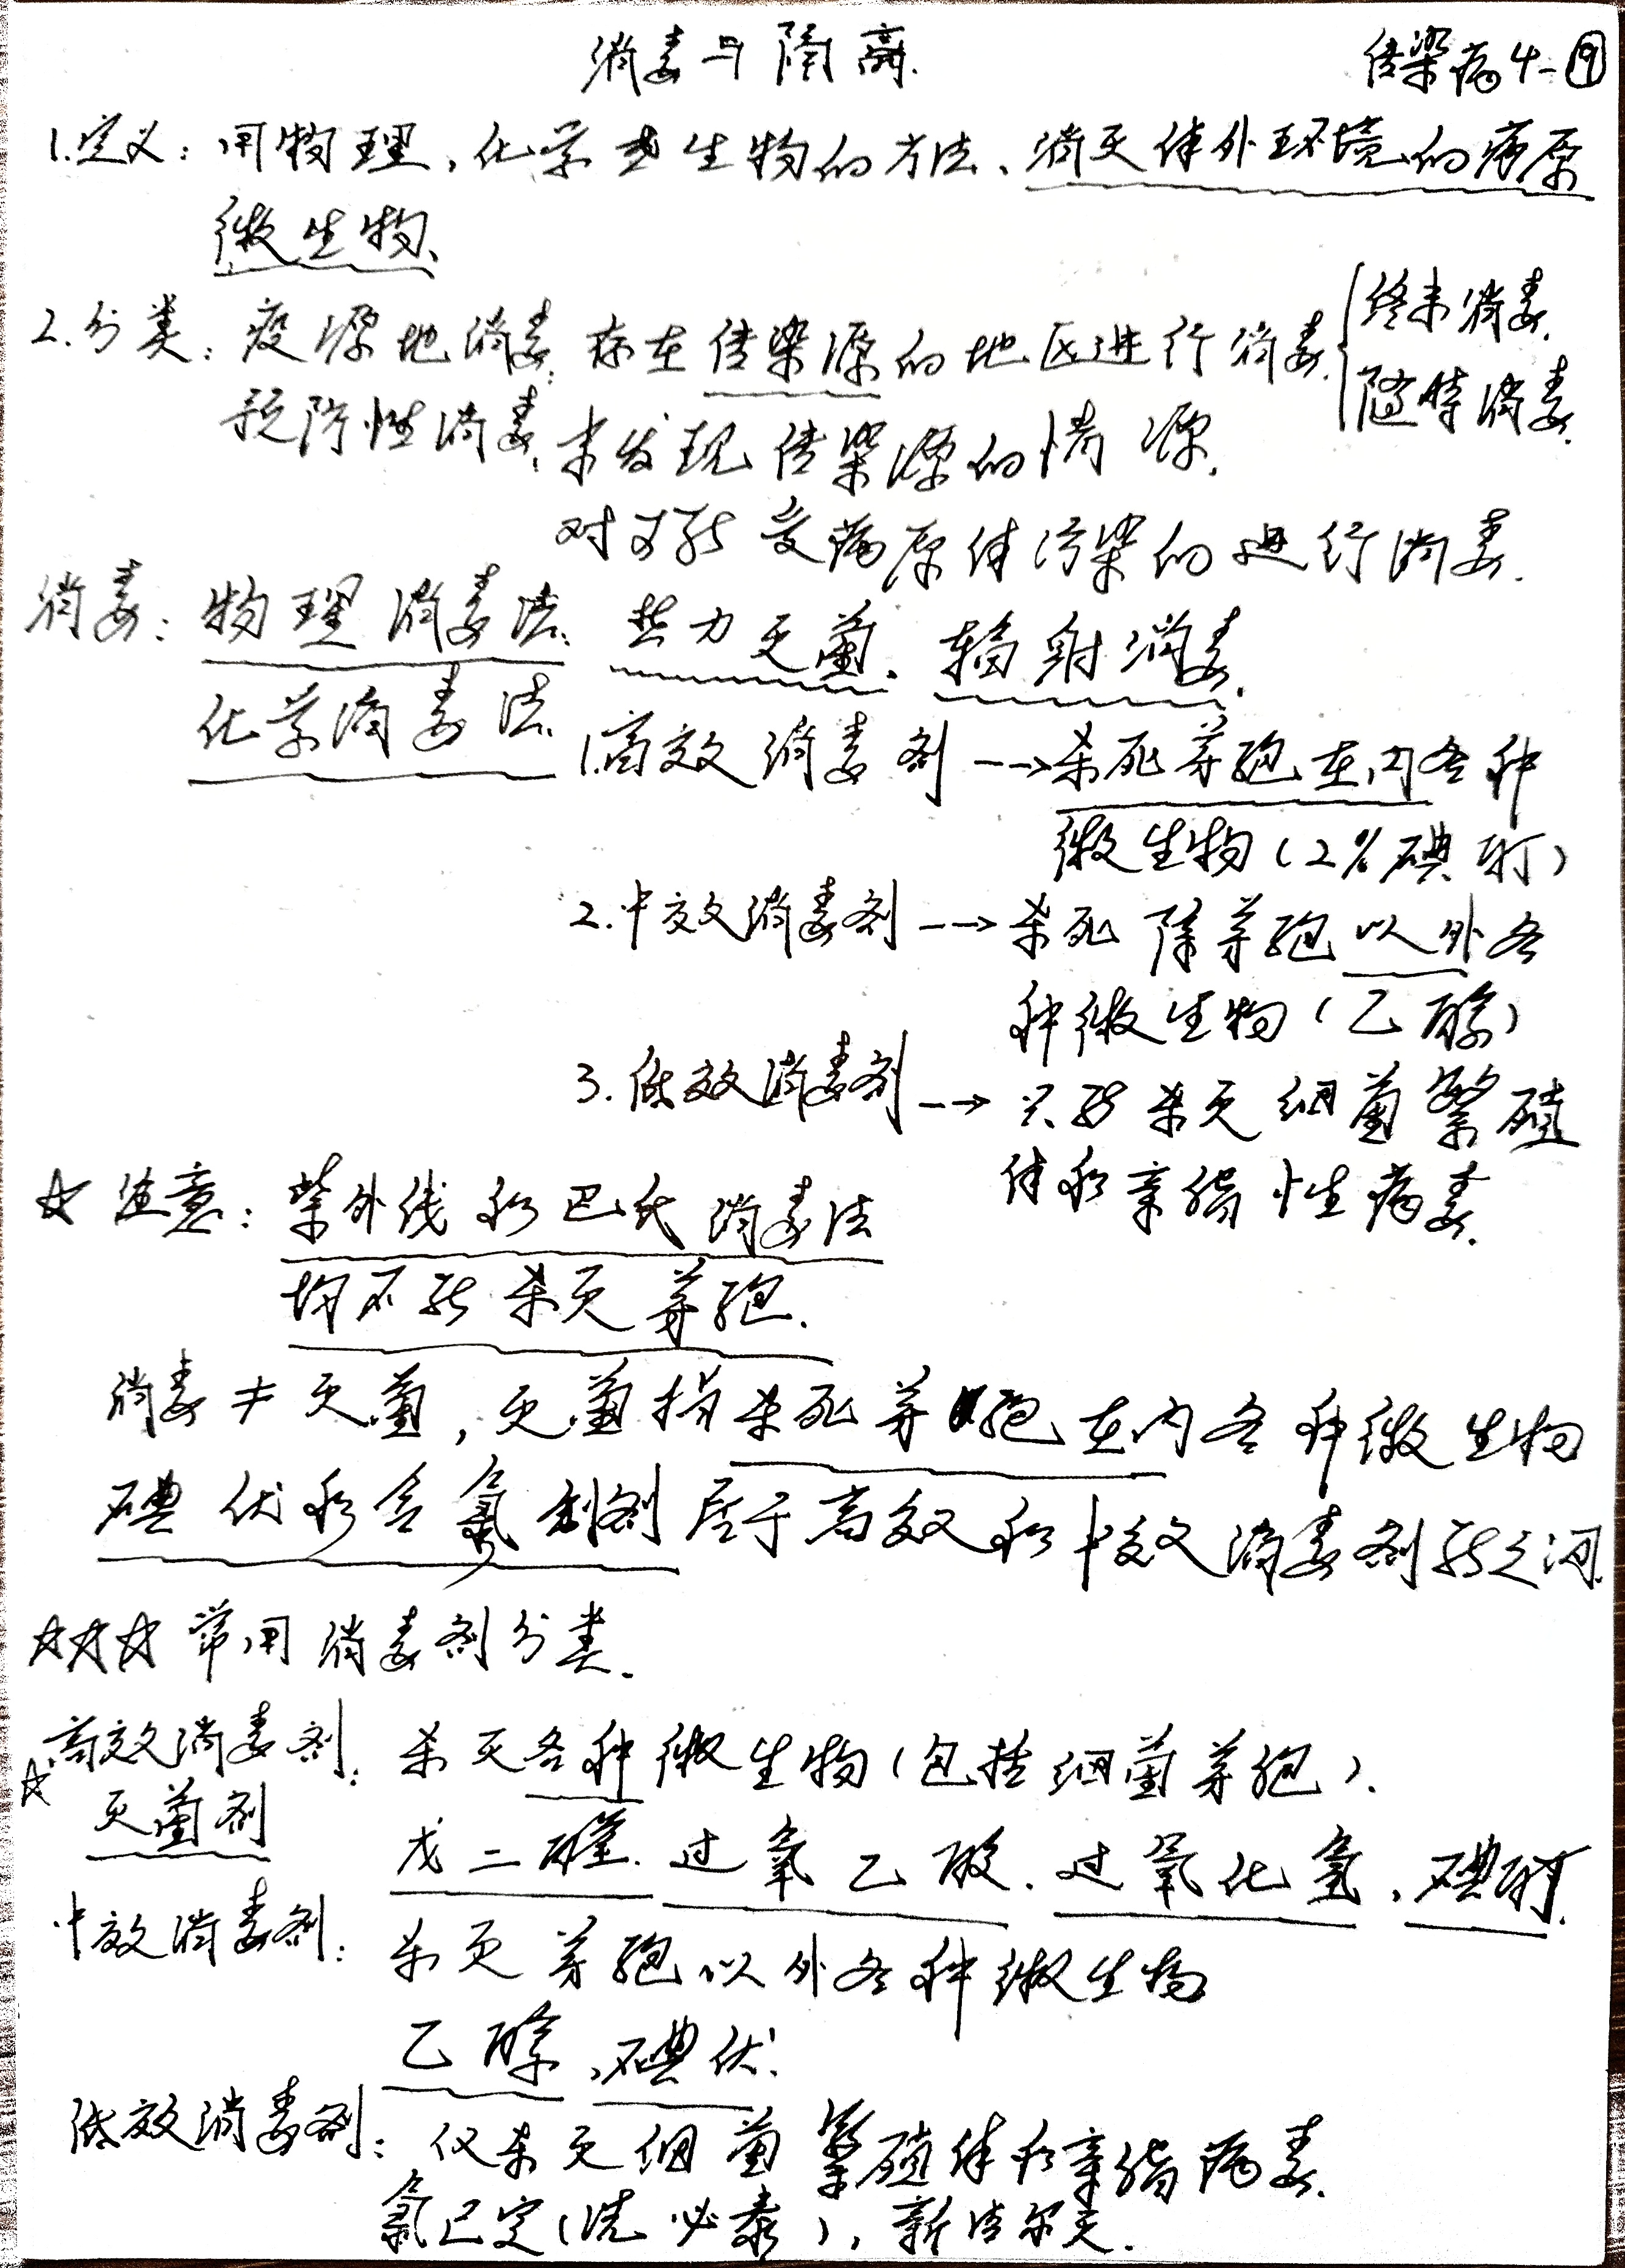 消毒与隔离.
传染病4-⑲
1.定义：用物理、化学或生物的方法、消灭体外环境的病原
微生物.
2.分类：疫源地消毒：存在传染源的地区进行消毒.
终末消毒.
随时消毒.
预防性消毒：未发现传染源的情 源.
对可能受病原体污染的进行消毒.
消毒：物理消毒法：热力灭菌、辐射消毒.
化学消毒法：
1.高效消毒剂 --→杀死芽孢在内各种
微生物(2%碘酊)
2.中效消毒剂 --→杀死除芽孢以外各
种微生物(乙醇)
3.低效消毒剂 --→只能杀灭细菌繁殖
体和亲脂性病毒.
☆ 注意：紫外线和巴氏消毒法
均不能杀灭芽孢.
消毒≠灭菌，灭菌指杀死芽孢在内各种微生物
碘伏和含氯制剂居于高效和中效消毒剂能之间.
☆☆☆常用消毒剂分类.
高效消毒剂：杀灭各种微生物(包括细菌芽孢).
☆ 灭菌剂
戊二醛.过氧乙酸.过氧化氢、碘酊.
中效消毒剂：杀灭芽孢以外各种微生物
乙醇、碘伏.
低效消毒剂：仅杀灭细菌繁殖体和亲脂病毒.
氯已定(洗必泰)，新洁尔灭.